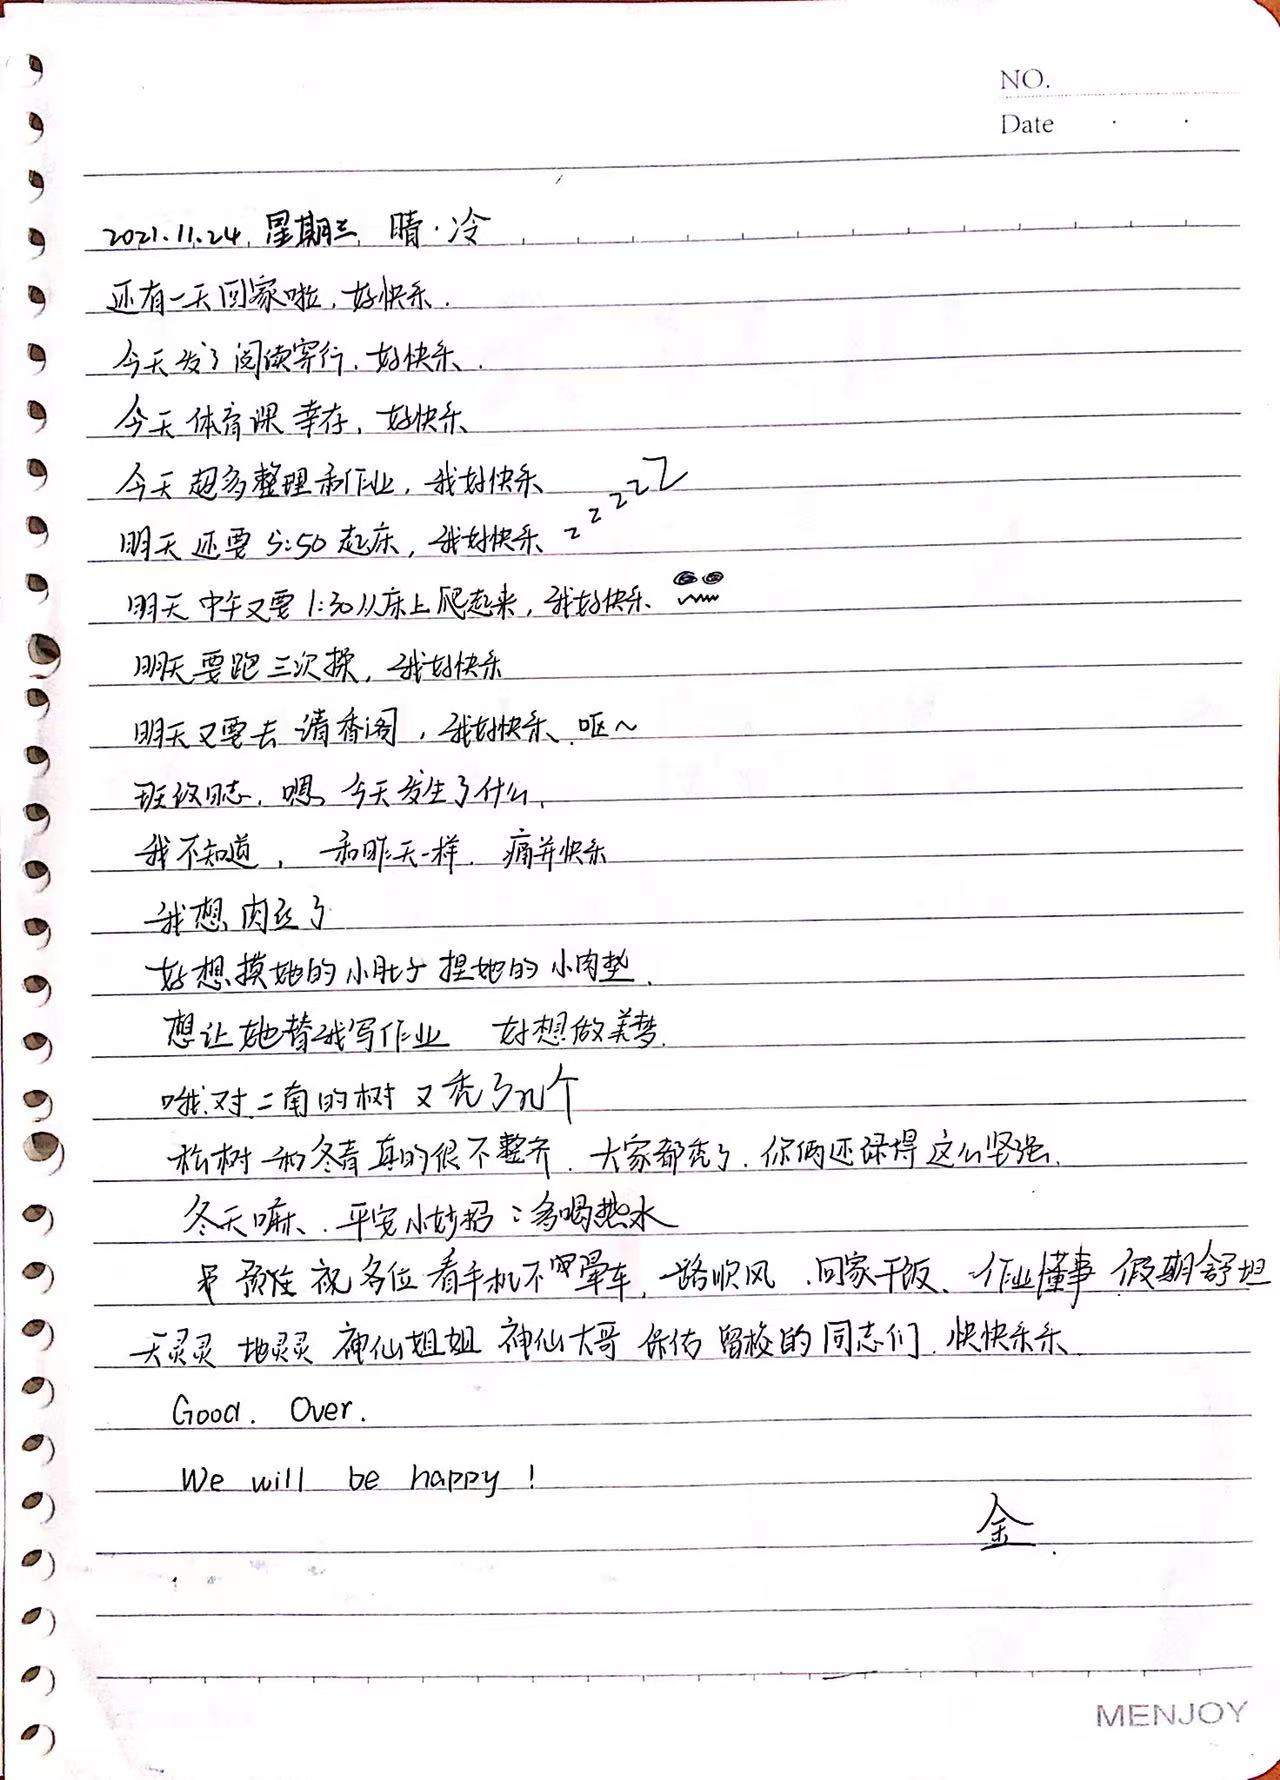 NO.
Date
2021.11.24. 星期三. 晴·冷
还有一天回家啦,好快乐.
今天发了阅读穿行,好快乐.
今天体育课幸存,好快乐
今天超多整理和作业,我好快乐
明天还要5:50起床,我好快乐 z z z z Z
明天中午又要1:30从床上爬起来,我好快乐
明天要跑三次操,我好快乐
明天又要去清香阁,我好快乐.呕~
班级日志.嗯.今天发生了什么.
我不知道,和昨天一样.痛并快乐
我想肉丝了
好想摸她的小肚子捏她的小肉垫.
想让她替我写作业 好想做美梦.
哦.对.二南的树又秃了几个
松树和冬青真的很不整齐.大家都秃了.你俩还绿得这么坚强.
冬天嘛、平安小妙招:多喝热水
预祝各位看手机不晕车,一路顺风.回家干饭、作业懂事 假期舒坦
天灵灵 地灵灵 神仙姐姐 神仙大哥 保佑 留校的同志们.快快乐乐
Good. Over.
We will be happy!
金.
MENJOY